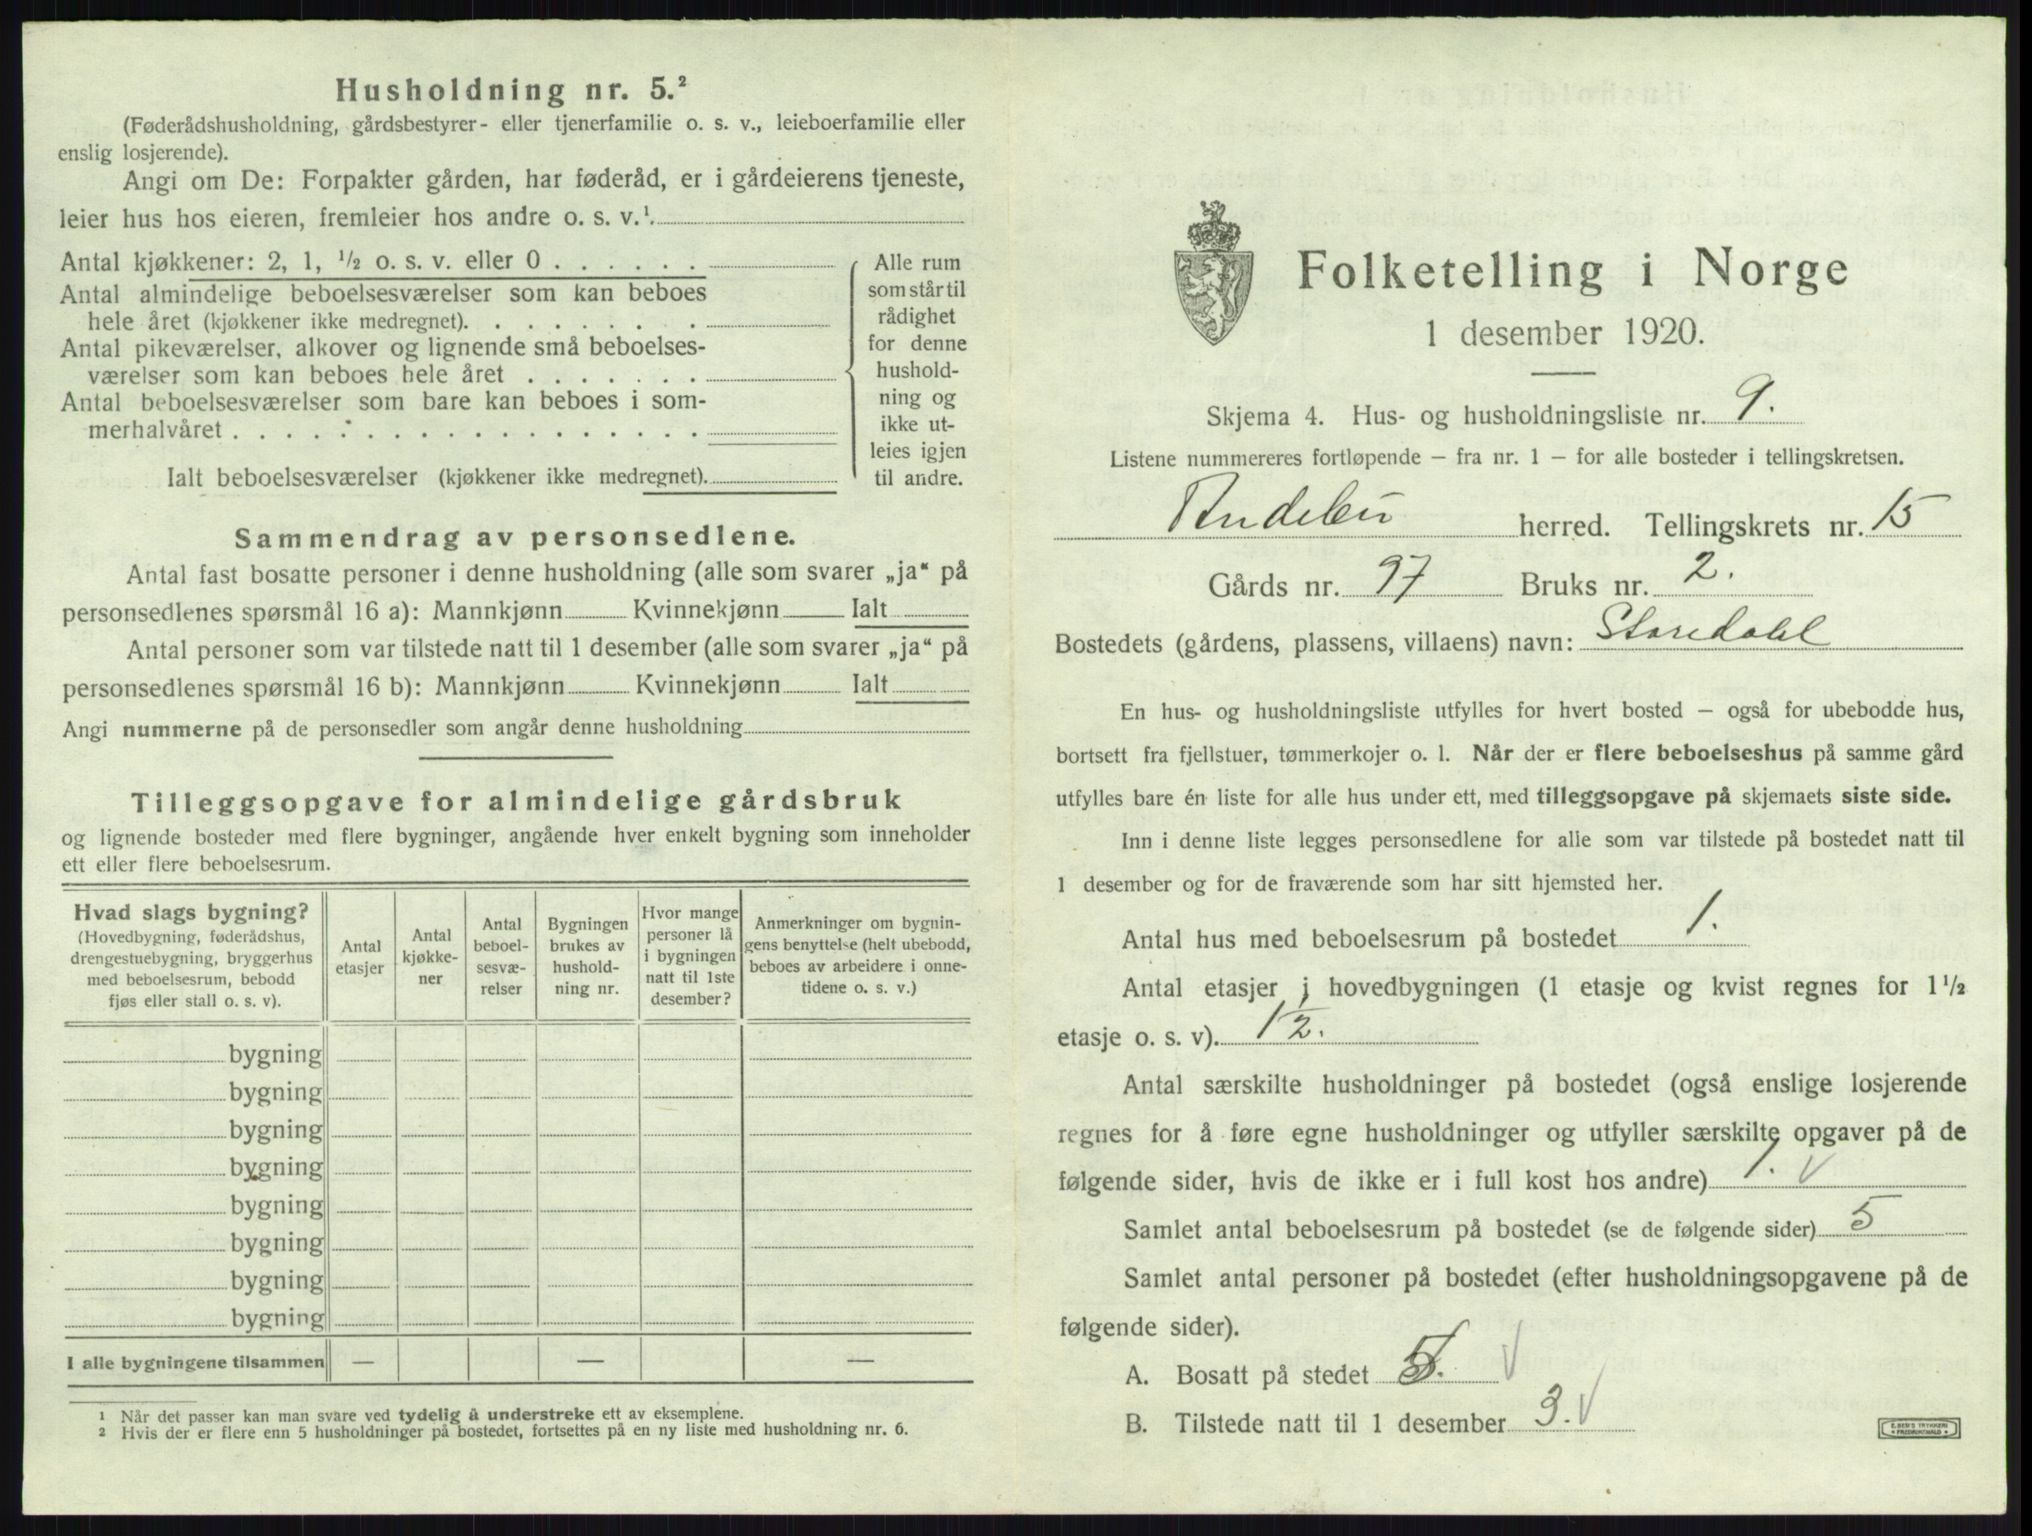 Husholdning nr. 5.²
(Føderådshusholdning, gårdsbestyrer- eller tjenerfamilie o. s. v., leieboerfamilie eller
enslig losjerende).
Angi om De: Forpakter gården, har føderåd, er i gårdeierens tjeneste,
leier hus hos eieren, fremleier hos andre o. s. v.¹.
Antal kjøkkener: 2, 1, ½ o. s. v. eller 0 . . . . . .
Antal almindelige beboelsesværelser som kan beboes
hele året (kjøkkener ikke medregnet). . . . . . . . .
Antal pikeværelser, alkover og lignende små beboelses-
værelser som kan beboes hele året . . . . . . .
Antal beboelsesværelser som bare kan beboes i som-
merhalvåret . . . . . . . . . . . . . . . . . .
Ialt beboelsesværelser (kjøkkener ikke medregnet).
Alle rum
som står til
rådighet
for denne
hushold-
ning og
ikke ut-
leies igjen
til andre.
Sammendrag av personsedlene.
Antal fast bosatte personer i denne husholdning (alle som svarer „ja“ på
personsedlenes spørsmål 16 a): Mannkjønn Kvinnekjønn Ialt
Antal personer som var tilstede natt til 1 desember (alle som svarer „ja“ på
personsedlenes spørsmål 16 b): Mannkjønn Kvinnekjønn Ialt
Angi nummerne på de personsedler som angår denne husholdning
Tilleggsopgave for almindelige gårdsbruk
og lignende bosteder med flere bygninger, angående hver enkelt bygning som inneholder
ett eller flere beboelsesrum.
Hvad slags bygning?
(Hovedbygning, føderådshus,
drengestuebygning, bryggerhus
med beboelsesrum, bebodd
fjøs eller stall o. s. v).
Antal
etasjer
Antal
kjøkke-
ner
Antal
beboel-
sesvæ-
relser
Bygningen
brukes av
hushold-
ning nr.
Hvor mange
personer lå
i bygningen
natt til 1ste
desember?
Anmerkninger om bygnin-
gens benyttelse (helt ubebodd,
beboes av arbeidere i onne-
tidene o. s. v.)
bygning
bygning
bygning
bygning
bygning
bygning
bygning
bygning
I alle bygningene tilsammen — — —
¹ Når det passer kan man svare ved tydelig å understreke ett av eksemplene.
² Hvis der er flere enn 5 husholdninger på bostedet, fortsettes på en ny liste med husholdning nr. 6.
Folketelling i Norge
1 desember 1920.
Skjema 4. Hus- og husholdningsliste nr. 9.
Listene nummereres fortløpende — fra nr. 1 — for alle bosteder i tellingskretsen.
Andebu herred. Tellingskrets nr. 15
Gårds nr. 97 Bruks nr. 2.
Bostedets (gårdens, plassens, villaens) navn: Storedahl
En hus- og husholdningsliste utfylles for hvert bosted — også for ubebodde hus,
bortsett fra fjellstuer, tømmerkojer o. l. Når der er flere beboelseshus på samme gård
utfylles bare én liste for alle hus under ett, med tilleggsopgave på skjemaets siste side.
Inn i denne liste legges personsedlene for alle som var tilstede på bostedet natt til
1 desember og for de fraværende som har sitt hjemsted her.
Antal hus med beboelsesrum på bostedet 1.
Antal etasjer i hovedbygningen (1 etasje og kvist regnes for 1½
etasje o. s. v). 1½.
Antal særskilte husholdninger på bostedet (også enslige losjerende
regnes for å føre egne husholdninger og utfyller særskilte opgaver på de
følgende sider, hvis de ikke er i full kost hos andre) 1. v
Samlet antal beboelsesrum på bostedet (se de følgende sider) 5
Samlet antal personer på bostedet (efter husholdningsopgavene på de
følgende sider).
A. Bosatt på stedet 5. v
B. Tilstede natt til 1 desember 3. v
E. SEM'S TRYKKERI
• FREDRIKSHALD •